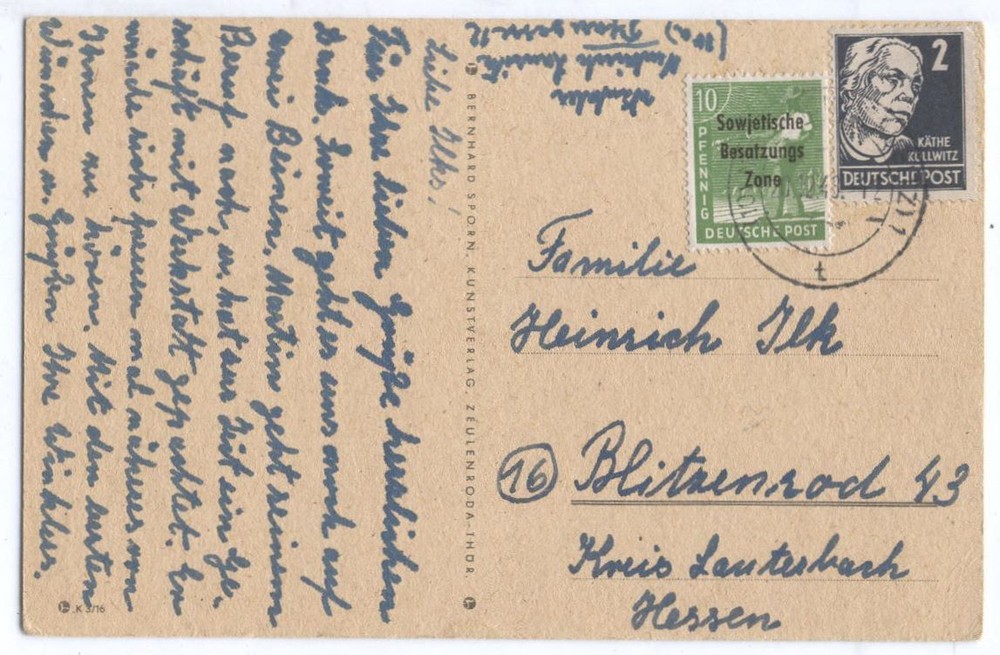 Liebe Ilks!
Für Ihre lieben Grüße herzlichen
Dank. Soweit geht es uns auch auf
zwei Beinen. Martin geht seinem
Beruf nach, u. hat zur Zeit ein Ge-
schäft mit Werkstatt gepachtet. Er
würde sich freuen mal näheres von
Ihnen zu hören. Mit den besten
Wünschen u. Grüßen Ihre Winklers.
Winkler
BERNHARD SPORN, KUNSTVERLAG, ZEULENRODA-THÜR
K 3/16
10
PFENNIG
Sowjetische
Besatzungs
Zone
DEUTSCHE POST
2
KÄTHE
KOLLWITZ
DEUTSCHE POST
t
Familie
Heinrich Ilk
16 Blitzenrod 43
Kreis Lauterbach
Hessen